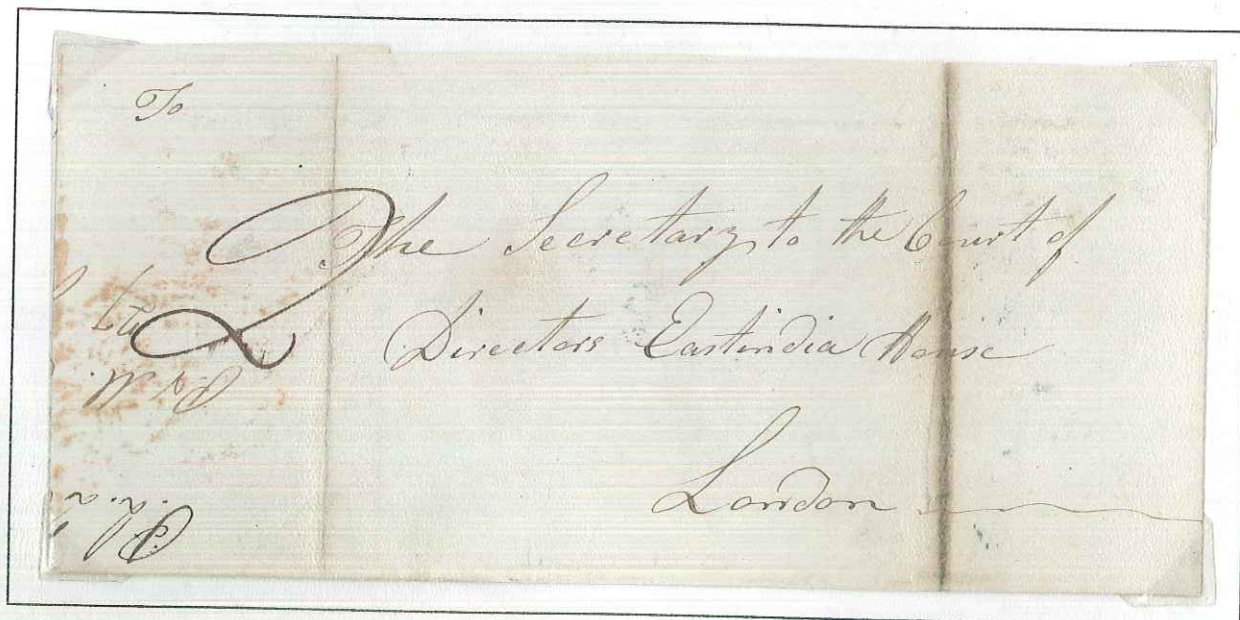 To
The Secretary to the Court of
Directors Eastindia House
London